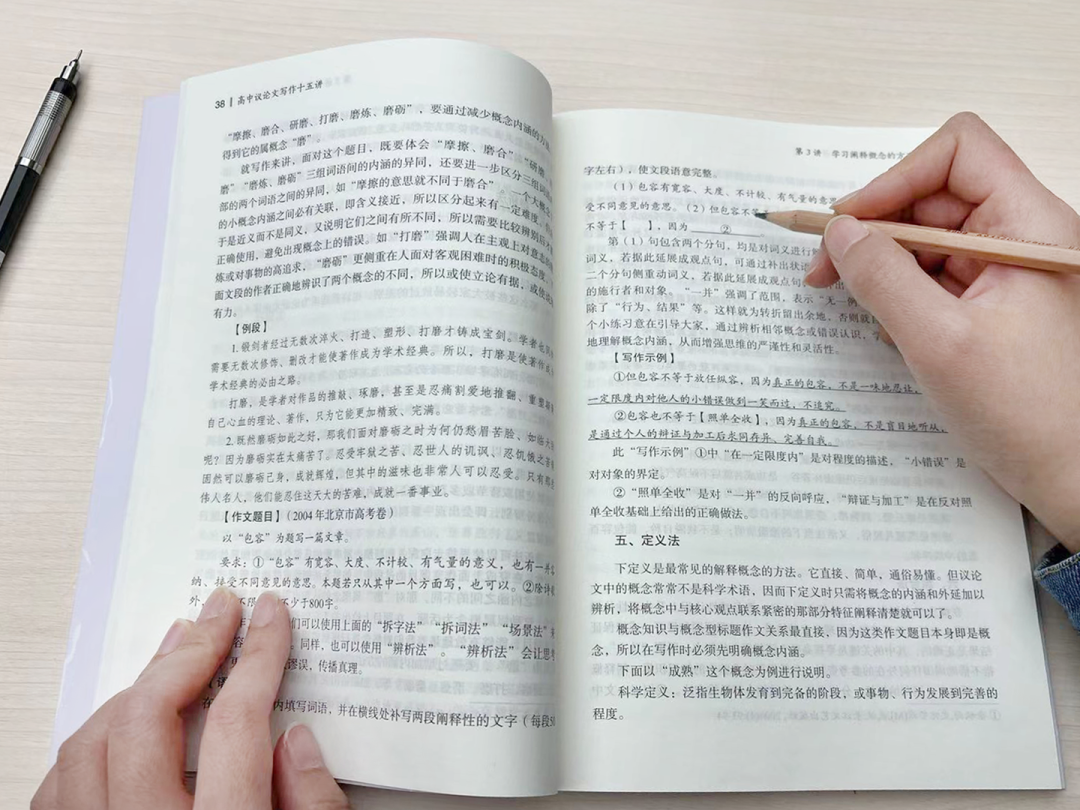 38 高中议论文写作十五讲
“摩擦、磨合、研磨、打磨、磨炼、磨砺”，要通过减少概念内涵的方法
得到它的属概念“磨”。
就写作来讲，面对这个题目，既要体会“摩擦、磨合”“研磨
磨”“磨炼、磨砺”三组词语间的内涵的异同，还要进一步区分三组词语
部的两个词语之间的异同，如“摩擦的意思就不同于磨合”，一个大概念
的小概念内涵之间必有关联，即含义接近，所以区分起来有一定难度，
于是近义而不是同义，又说明它们之间有所不同，所以需要比较辨别后才
正确使用，避免出现概念上的错误。如“打磨”强调人在主观上对意志的
炼或对事物的高追求，“磨砺”更侧重在人面对客观困难时的积极态度。
面文段的作者正确地辨识了两个概念的不同，所以或使立论有据，或使
有力。
【例段】
1. 锻剑者经过无数次淬火、打造、塑形、打磨才铸成宝剑。学者也
需要无数次修饰、删改才能使著作成为学术经典。所以，打磨是使著作成
学术经典的必由之路。
打磨，是学者对作品的推敲、琢磨，甚至是忍痛割爱地推翻、重塑
自己心血的理论、著作，只为它能更加精致、完满。
2. 既然磨砺如此之好，那我们面对磨砺之时为何仍愁眉苦脸、如临大
呢？因为磨砺实在太痛苦了。忍受牢狱之苦、忍世人的讥讽、忍饥饿之
固然可以磨砺己身，成就辉煌，但其中的滋味也非常人可以忍受。只有那
伟人名人，他们能忍住这天大的苦难，成就一番事业。
【作文题目】（2004年北京市高考卷）
以“包容”为题写一篇文章。
要求：①“包容”有宽容、大度、不计较、有气量的意义，也有一并
纳、接受不同意见的意思。本题若只从其中一个方面写，也可以。②除诗
外，不限 不少于800字。
们可以使用上面的“拆字法”“拆词法”“场景法”
容 。同样，也可以使用“辨析法”。“辨析法”会让思
谬误，传播真理。
在 内填写词语，并在横线处补写两段阐释性的文字（每段50
第3讲 学习阐释概念的方
字左右），使文段语意完整。
（1）包容有宽容、大度、不计较、有气量的意思
受不同意见的意思。（2）但包容不等
不等于【 】，因为 ②
第（1）句包含两个分句，均是对词义进行
词义，若据此延展成观点句，可通过补出状语
二个分句侧重动词义，若据此延展成观点句
的施行者和对象、“一并”强调了范围，表示“无一例
除了“行为、结果”等。这样就为转折留出余地，否则就
个小练习意在引导大家，通过辨析相邻概念或错误认识，
地理解概念内涵，从而增强思维的严谨性和灵活性。
【写作示例】
①但包容不等于放任纵容，因为真正的包容，不是一味地忍让，
一定限度内对他人的小错误做到一笑而过，不追究。
②包容也不等于【照单全收】，因为真正的包容，不是盲目地听从，
是通过个人的辩证与加工后求同存异、完善自我。
此“写作示例”①中“在一定限度内”是对程度的描述，“小错误”是
对对象的界定。
②“照单全收”是对“一并”的反向呼应，“辩证与加工”是在反对照
单全收基础上给出的正确做法。
五、定义法
下定义是最常见的解释概念的方法。它直接、简单，通俗易懂。但议论
文中的概念常常不是科学术语，因而下定义时只需将概念的内涵和外延加以
辨析，将概念中与核心观点联系紧密的那部分特征阐释清楚就可以了。
概念知识与概念型标题作文关系最直接，因为这类作文题目本身即是概
念，所以在写作时必须先明确概念内涵。
下面以“成熟”这个概念为例进行说明。
科学定义：泛指生物体发育到完备的阶段，或事物、行为发展到完善的
程度。